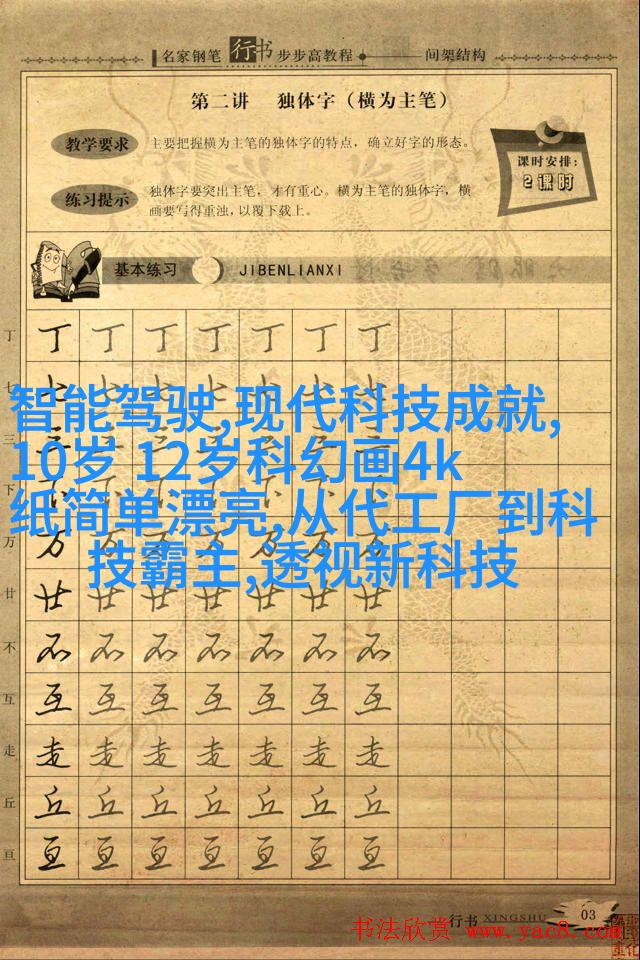 名家钢笔 行书 步步高教程 间架结构
第二讲 独体字（横为主笔）
教学要求 主要把握横为主笔的独体字的特点，确立好字的形态。
课时安排：
2课时
练习提示 独体字要突出主笔，才有重心。横为主笔的独体字，横
画要写得重浊，以覆下载上。
基本练习 JIBENLIANXI
丁 丁 丁 丁 丁 丁 丁 丁
七 七 七 七 七 七 七 七
智能驾驶,现代科技成就,
10岁 12岁科幻画4k
纸简单漂亮,从代工厂到科
技霸主,透视新科技
万 万 万 万 万 万 万 万
廿 廿 廿 廿 廿 廿 廿 廿
不 不 不 不 不 不 不 不
互 互 互 互 互 互 互 互
走 走 走 走 走 走 走 走
丘 丘 丘 丘 丘 丘 丘 丘
亘 亘 亘 亘 亘 亘 亘 亘
行书 XINGSHU 03
书法欣赏 www.yac8.com